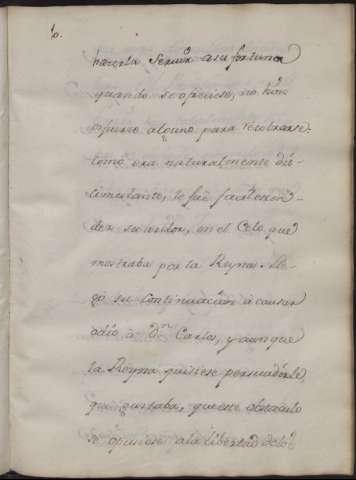 10.
hacerla Servir a su fortuna
quando se ofreciese, no hizo
esfuerzo alguno para recobrarse.
Como era naturalmente dis-
simulante, le fué facil escon-
der su ardor, en el Celo que
mostraba por la Reyna. Lle-
gó su continuacion à causar
odio à Dn. Carlos, y aunque
la Reyna quisiese persuadirle,
que gustaba, que este obstaculo
se opusiese a la libertad de los